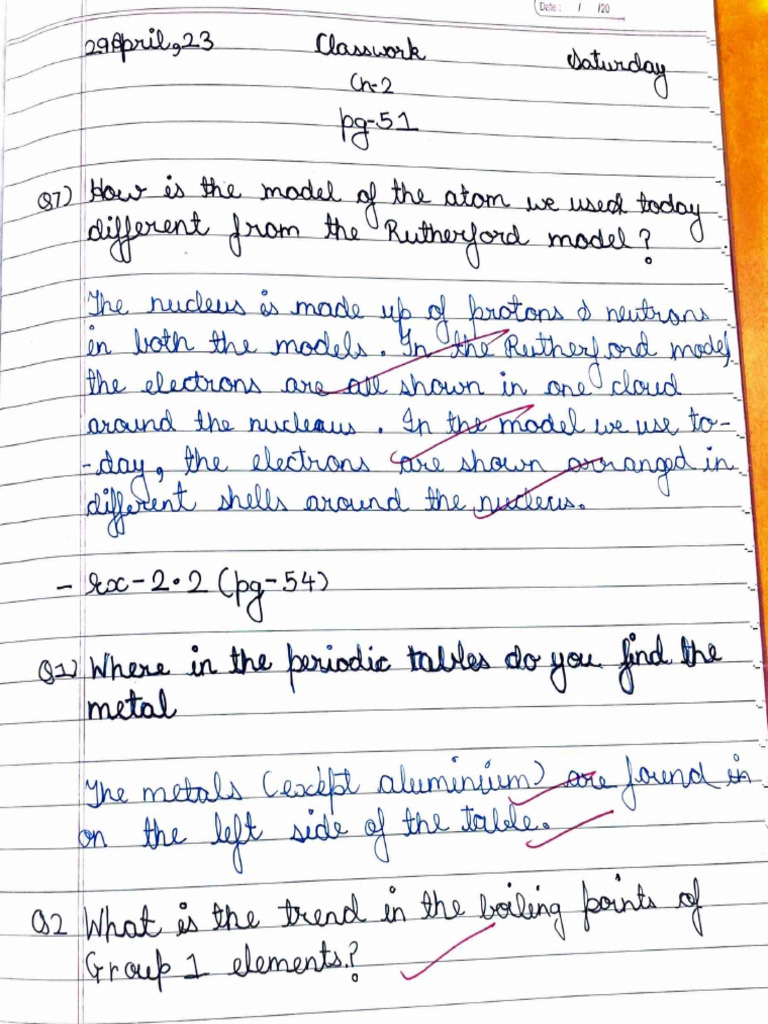 Date: / /20
29April,23 Classwork Saturday
Ch-2
pg-51
Q7) How is the model of the atom we used today
different from the Rutherford model?
The nucleus is made up of protons & neutrons
in both the models. In the Rutherford model
the electrons are all shown in one cloud
around the nucleaus. In the model we use to-
-day, the electrons are shown arranged in
different shells around the nucleus.
- Ex-2.2 (pg-54)
Q1) Where in the periodic tables do you find the
metal
The metals (except aluminium) are found in
on the left side of the table.
Q2 What is the trend in the boiling points of
Group 1 elements?